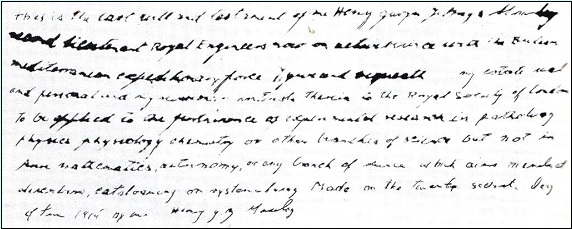 This is the last will and testament of me Henry Gwyn Jeffreys Moseley
second lieutenant Royal Engineers now on active service with the British
mediterranean expeditionary force I give and bequeath my estate real
and personal and my reversionary interests therein to the Royal Society of London
to be applied to the furtherance of experimental research in pathology
physics physiology chemistry or other branches of science but not in
pure mathematics, astronomy, or any branch of science which aims merely at
describing, cataloguing or systematising Made on the twenty seventh Day
of June 1915 by me Henry G. J. Moseley